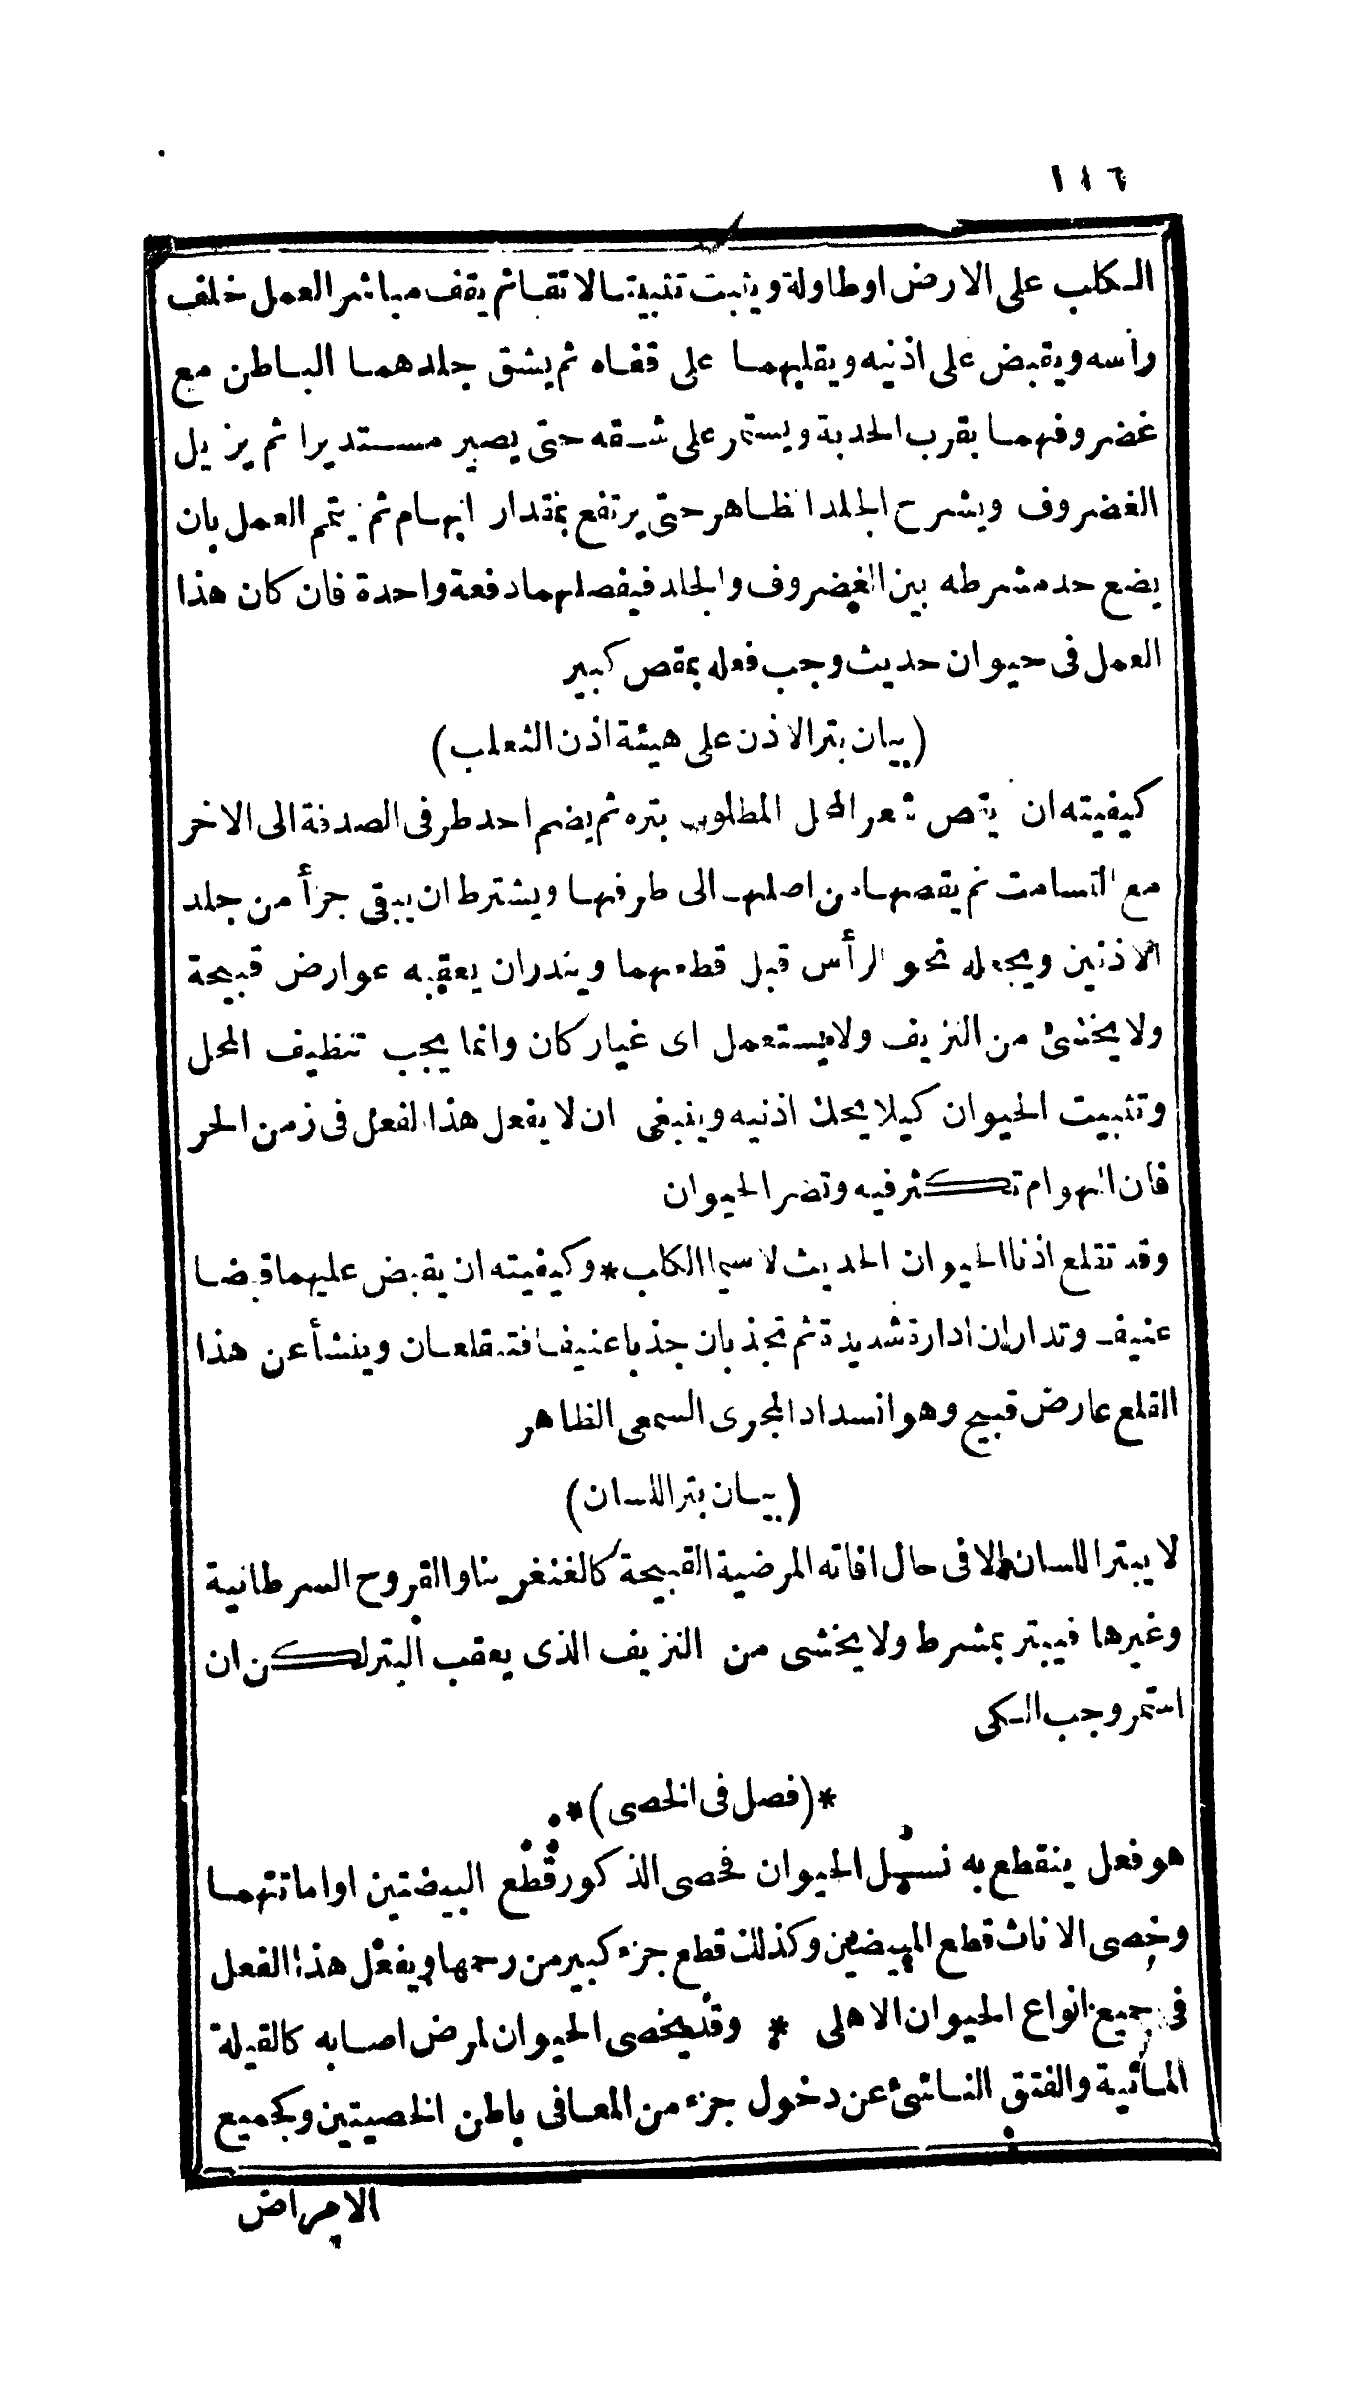 ١١٦
الكلب على الارض او طاولة ويثبت تثبيتا لائقا ثم يقف مباشر العمل خلف
رأسه ويقبض على اذنيه ويقلبهما على قفاه ثم يشق جلدهما الباطن مع
غضروفهما بقرب الحدبة ويستمر على شقه حتى يصير مستديرا ثم يزيل
الغضروف ويشرح الجلد الظاهر حتى يرتفع بمقدار ابهام ثم يتمم العمل بان
يضع حد مشرطه بين الغضروف والجلد فيفصلهما دفعة واحدة فان كان هذا
العمل فى حيوان حديث وجب فعله بمقص كبير
(بيان بتر الاذن على هيئة اذن الثعلب)
كيفيته ان يقص شعر المحل المطلوب بتره ثم يضم احد طرفى الصدفة الى الاخر
مع التسامت ثم يقصها من اصلها الى طرفها ويشترط ان يبقى جزأ من جلد
الاذنين ويجعله نحو الرأس قبل قطعهما ويندر ان يعقبه عوارض قبيحة
ولا يخشى من النزيف ولا يستعمل اى غيار كان وانما يجب تنظيف المحل
وتثبيت الحيوان كيلا يحك اذنيه وينبغى ان لا يفعل هذا الفعل فى زمن الحر
فان الهوام تكثر فيه وتضر الحيوان
وقد تقلع اذنا الحيوان الحديث لا سيما الكاب * وكيفيته ان يقبض عليهما قبضا
عنيفا وتداران ادارة شديدة ثم تجذبان جذبا عنيفا فتنقلعان وينشأ عن هذا
القلع عارض قبيح وهو انسداد المجرى السمعى الظاهر
(بيان بتر اللسان)
لا يبتر اللسان الا فى حال افاته المرضية القبيحة كالغنغرينا والقروح السرطانية
وغيرها فيبتر بمشرط ولا يخشى من النزيف الذى يعقب البتر لكن ان
استمر وجب الكى
*(فصل فى الخصى)*
هو فعل ينقطع به نسل الحيوان فخصى الذكور قطع البيضتين او اماتتهما
وخصى الاناث قطع المبيضين وكذلك قطع جزء كبير من رحمها ويفعل هذا الفعل
فى جميع انواع الحيوان الاهلى * وقد يخصى الحيوان لمرض اصابه كالقيلة
المائية والفتق الناشئ عن دخول جزء من المعا فى باطن الخصيتين وكجميع
الامراض